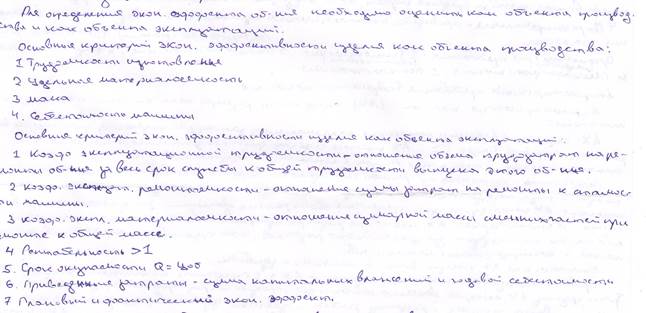 Для определения экон. эффекта об-ния необходимо оценить как объекта производ-
ства и как объекта эксплуатаций.
Основные критерий экон. эффективности изделия как объекта производства:
1 Трудоемкость изготовление
2 Удельное материалоемкость
3 масса
4. Себестоимость машины
Основные критерий экон. эффективности изделия как объекта эксплуатаций:
1 Коэф эксплуатационной трудоемкости - отношение объема трудозатрат на ре-
монты об-ние за весь срок службы к общей трудоемкости выпуска этого об-ние.
2 коэф. эксплуат. ремонтоемкости - отношение суммы затрат на ремонты к стоимос-
ти машины.
3 коэф. экспл. материалоемкости - отношение суммарной массы сменных частей при
ремонте к общей массе.
4 Рентабельность >1
5. Срок окупаемости
6. Приведенные затраты - сумма капитальных вложений и годовой себестоимости
7 Плановый и фактический экон. эффект.